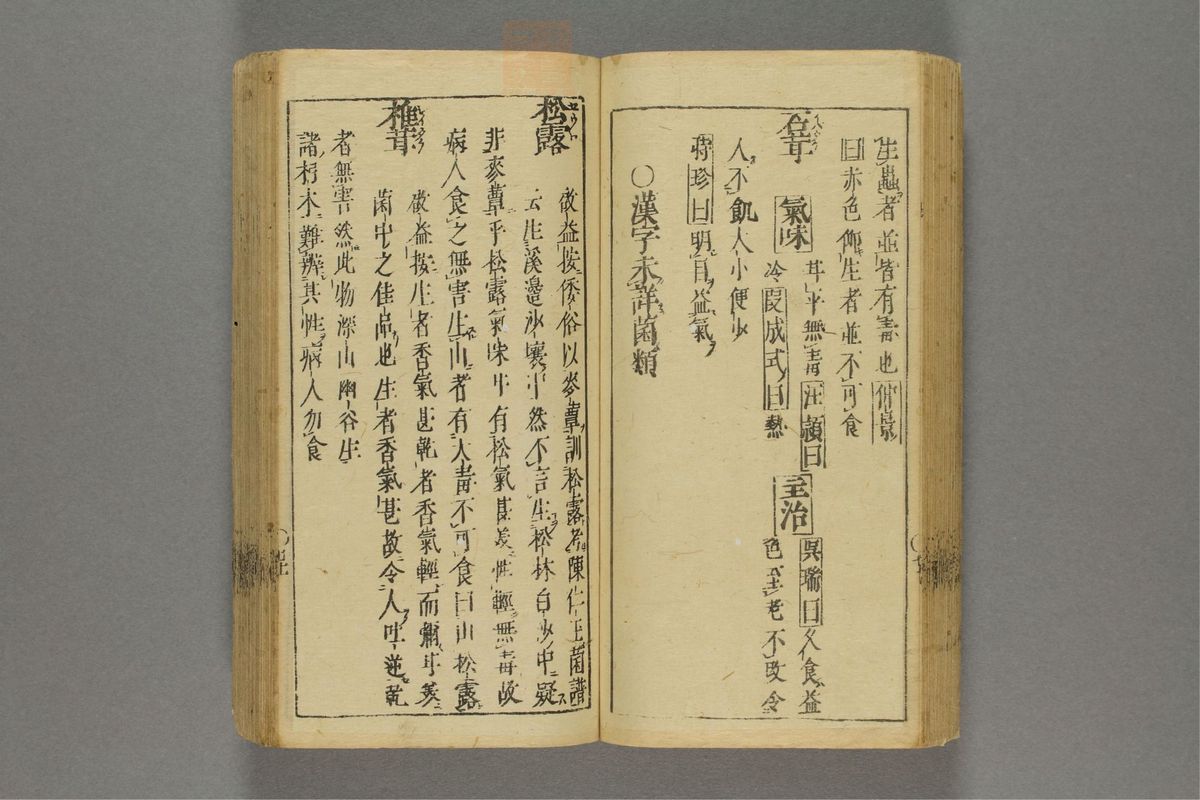 生蟲者並皆有毒也仲景
曰赤色仰生者並不可食
石耳
氣味
甘平無毒汪頴曰
冷段成式曰熱
主治
呉瑞曰久食益
色至老不改令
人不飢大小便少
時珍曰明目益氣
〇漢字未詳菌類
松露
啟益按倭俗以麥蕈訓松露者陳仁玉菌譜
云生溪邊沙壤中然不言生松林白沙中疑
非麥蕈乎松露氣味甘有松氣甚美性輕無毒故
病人食之無害生山者有大毒不可食曰山松露
椎茸
啟益按生者香氣甚乾者香氣輕而彌甘美
菌中之佳品也生者香氣甚故令人吐逆乾
者無害然此物深山幽谷生
諸朽木難辨其性病人勿食